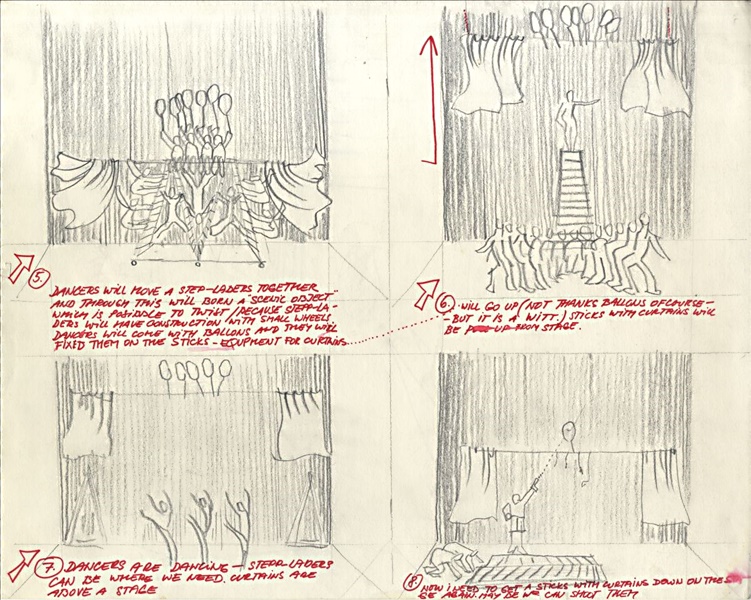 5. DANCERS WILL MOVE A STEP-LADERS TOGETHER
AND THROUGH THIS WILL BORN A "SCENIC OBJECT"
WHICH IS POSIBLE TO TWIST /BECAUSE STEPP-LA-
DERS WILL HAVE CONSTRUCTION WITH SMALL WHEELS.
DANCERS WILL COME WITH BALLONS AND THEY WILL
FIXED THEM ON THE STICKS - EQUPMENT FOR CURTAINS
6. WILL GO UP/(NOT THANKS BALLONS OF COURSE -
- BUT IT IS A WITT.) STICKS WITH CURTAINS WILL
BE UP FROM STAGE.
7. DANCERS ARE DANCING - STEPP-LADERS
CAN BE WHERE WE NEED. CURTAINS ARE
ABOVE A STAGE
8. NOW I NEED TO GET A STICKS WITH CURTAINS DOWN ON THE
AGAIN. MAY BE WE CAN SHOOT THEM